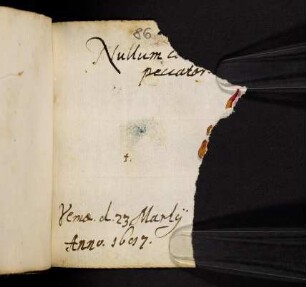 86
Nullum
peccator
t.
d. 23 Martij
Anno. 1607.